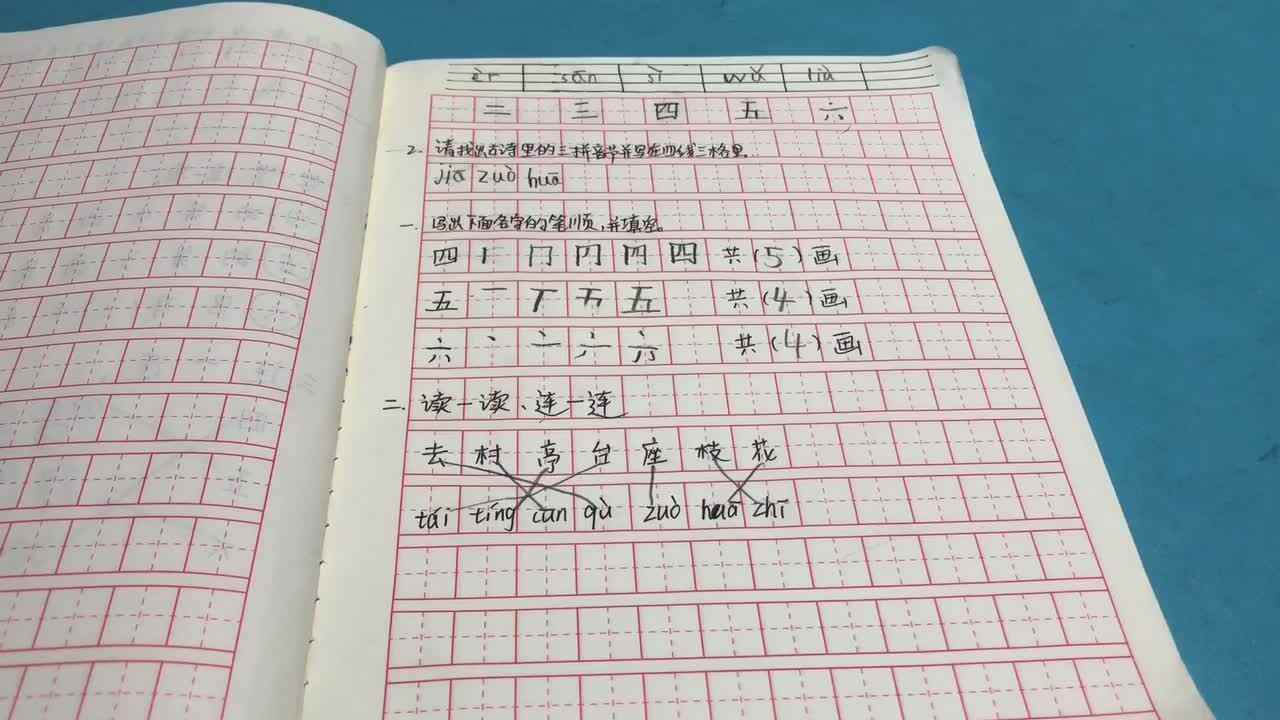 èr sān sì wǔ liù
二 三 四 五 六
2. 请找出古诗里的三拼音节并写在四线三格里。
jiā zuò huā
一. 写出下面各字的笔顺,并填空。
四 丨 冂 𦉪 四 四 共(5)画
五 一 丅 五 共(4)画
六 丶 亠 六 共(4)画
二. 读一读、连一连
去 村 亭 台 座 枝 花
tái tíng cūn qù zuò huā zhī